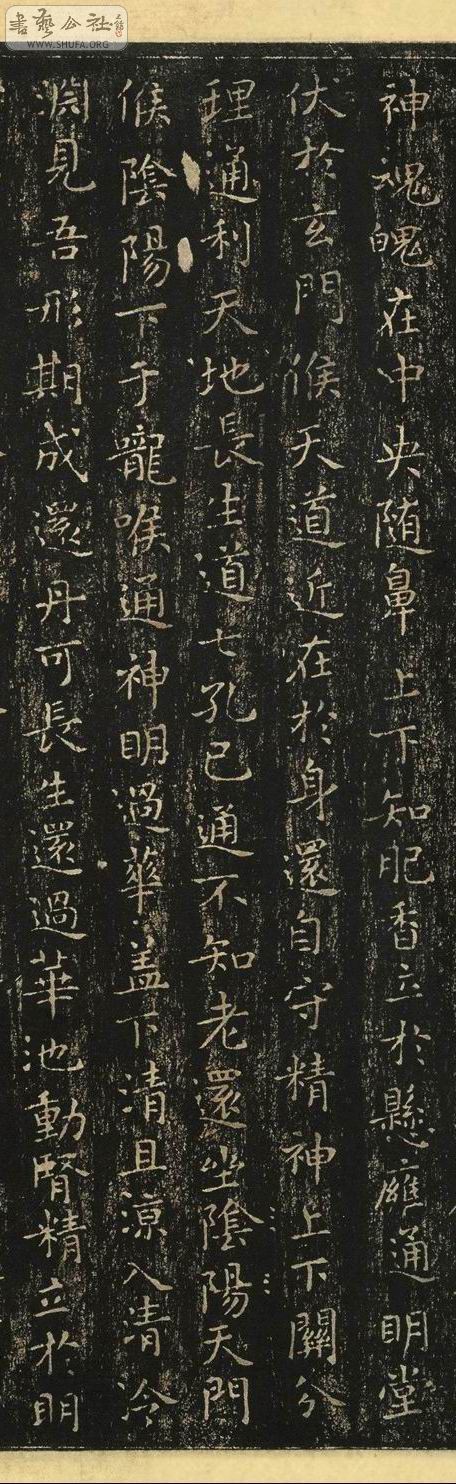 書藝公社
WWW.SHUFA.ORG
神魂魄在中央随鼻上下知肥香立於懸雍通明堂
伏於玄門候天道近在於身還自守精神上下關分
理通利天地長生道七孔已通不知老還坐陰陽天門
候陰陽下于嚨喉通神明過華蓋下清且涼入清冷
淵見吾形期成還丹可長生還過華池動腎精立於明